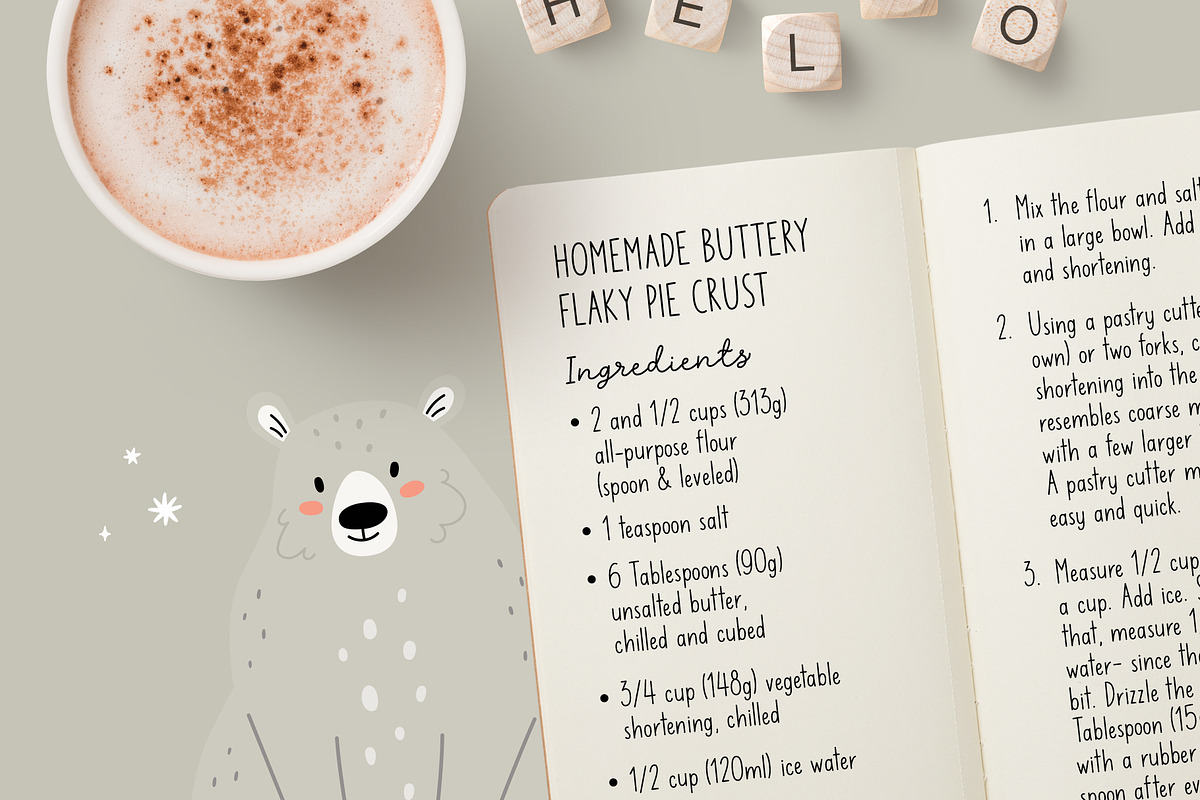 H E L O
HOMEMADE BUTTERY
FLAKY PIE CRUST
Ingredients
• 2 and 1/2 cups (313g)
all-purpose flour
(spoon & leveled)
• 1 teaspoon salt
• 6 Tablespoons (90g)
unsalted butter,
chilled and cubed
• 3/4 cup (148g) vegetable
shortening, chilled
• 1/2 cup (120ml) ice water
1. Mix the flour and salt
in a large bowl. Add
and shortening.
2. Using a pastry
own) or two forks,
shortening into the
resembles coarse
with a few larger
A pastry cutter
easy and quick.
3. Measure 1/2 cup
a cup. Add ice.
that, measure
water- since
bit. Drizzle the
Tablespoon
with a rubber
spoon after